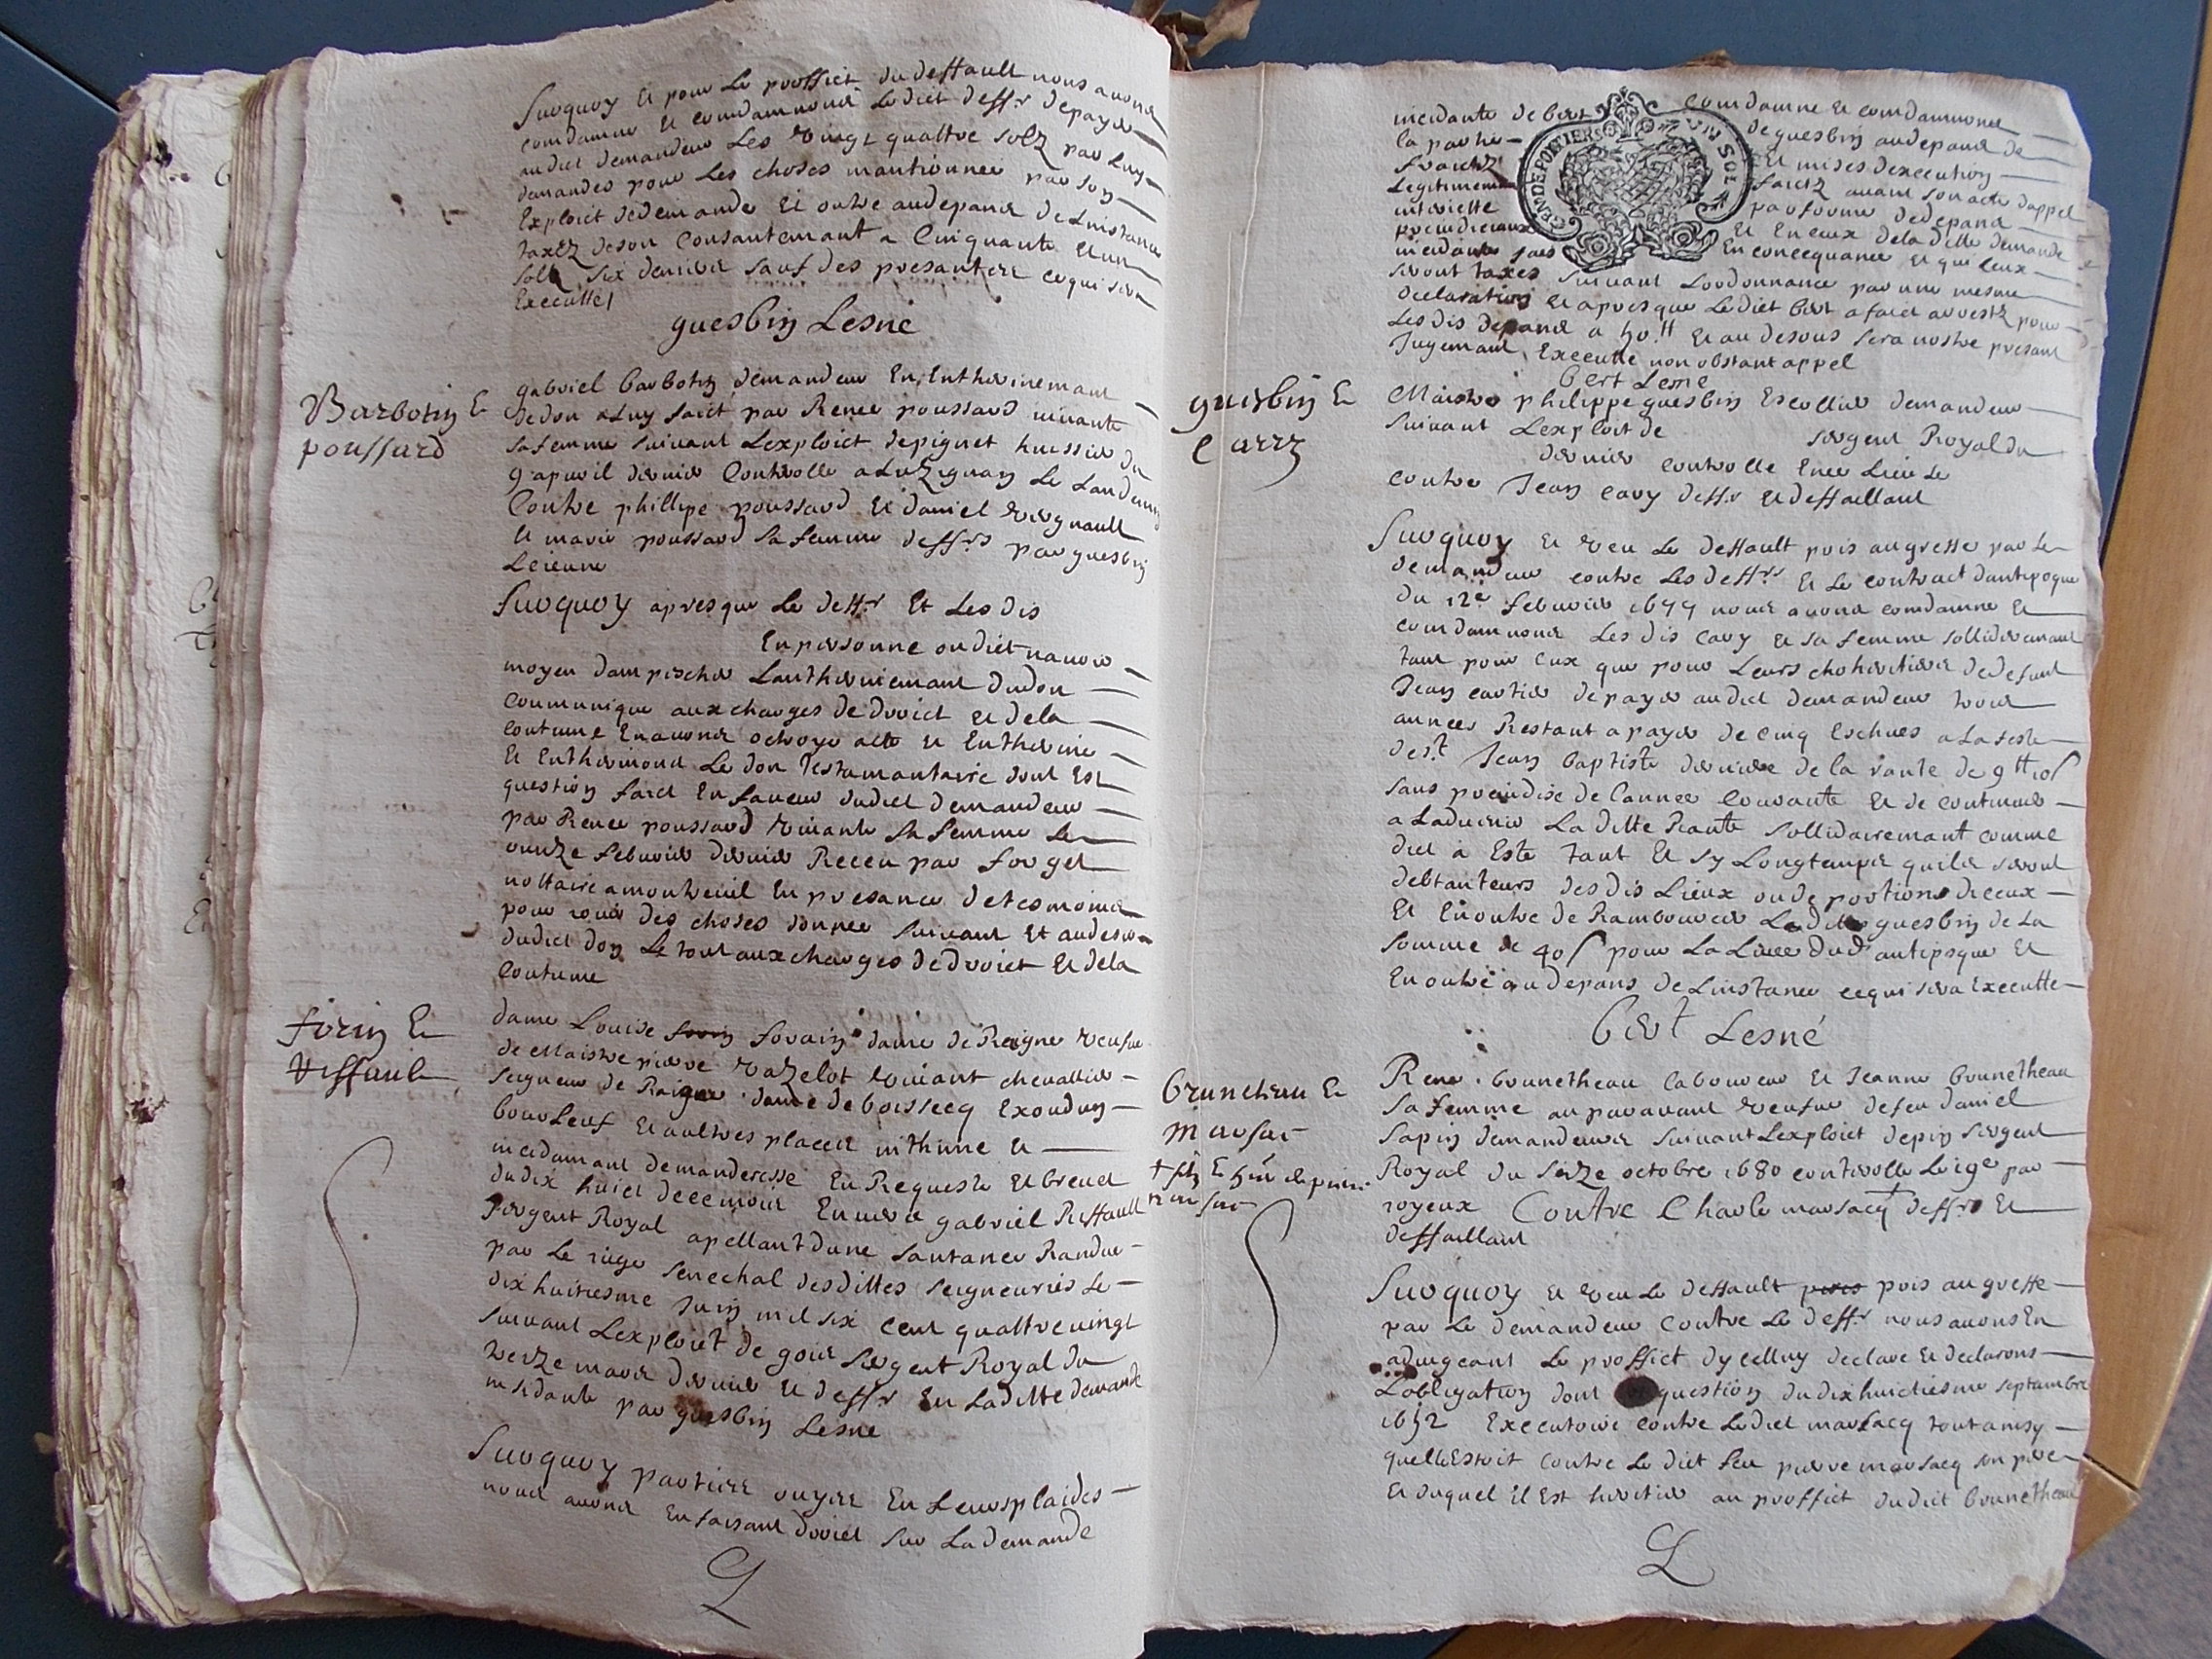 Surquoy et pour le proffict du deffault nous avons
condamne et condamnons ledict deffr de payer
audict demandeur les vingt quattre solz par luy
demandes pour les choses mantionnee par son
Exploict de demande et outre au depans de linstance
taxez de son consantemant a cinquante et un
solz six deniers sauf des presantes ce qui sera
Executte
guesbin Lesne
Barbotin &
poussard
gabriel barbotin demandeur En Entherinemant
de don a luy faict par Renee poussard vivante
sa femme suivant Lexploict de pignet huissier du
9 apvril dernier Controlle a Luzignan le landemain
Contre phillipe poussard et daniel vergnault
et marie poussard sa femme deffrs par guesbin
Le jeune
Surquoy apres que le deffr et les dis
En personne ou dict navoir
moyen dampescher lantherinemant du don
communique aux charges de droict et de la
coutume En avons octroye acte et Entherine
et Entherinons le don Testamantaire dont Est
question faict En faveur dudict demandeur
par Renee poussard vivante sa femme le
ounze febvrier dernier Receu par forget
nottaire a montreuil En presance de tesmoins
pour jouir des choses donnee suivant et au desir
dudict don le tout aux charges de droict et de la
coutume
forin &
Riffault
dame Louise forin forain dame de Raigne veufve
de Maistre pierre razelot vivant chevallier
seigneur de Raigne dame de boissecq Exoudun
bourleuf et aultres places inthime et
incidamant demanderesse En Requeste et brevet
du dix huict decembre Envers gabriel Riffault
sergent Royal apellant dune santance Randue
par le juge senechal desdittes seigneuries le
dix huitiesme juin mil six cent quattre vingt
suivant Lexploict de goue sergent Royal du
treize mars dernier et deffr En laditte demande
insidante par guesbin Lesne
Surquoy parties ouyee En leurs plaides
nous avons En faisant droict sur La demande
incidante de bert condamne et condamnons
la partie de guesbin au depans de
fraictz et mises dexecution
legitimement faictz avant son acte dappel
interiette par forme de depans
preiudiciaux et En ceux de la ditte demande
incidante En concequance et que ceux
seront taxes suivant Lordonnance par une mesme
declaration et apres que ledict bert a faict arrestz pour
les dis depans a 50 tt et au desous sera nostre presant
jugemant Executte non obstant appel
bert Lesne
guesbin &
Carry
Maistre philippe guesbin Escollier demandeur
suivant Lexploit de sergent Royal du
dernier controlle En ce lieu le
contre Jean cary deffr et deffaillant
Surquoy et veu le deffault pris au greffe par le
demandeur contre les deffrs et le contract dantipoque
du 12e febvrier 1677 nous avons condamne et
condamnons les dis cary et sa femme sollidairemant
tant pour eux que pour leurs cohoritiers de defunt
Jean cartier de payer audict demandeur trois
annees Restant a payer de cinq Escheus a la feste
de st Jean baptiste derniere de la rante de 9 tt 10 s
sans preiudice de lannee couvante et de continuer
a Ladvenir La ditte Rante sollidairemant comme
dict a Este tant et sy Longtemps quils seront
debtanteurs des dis Lieux ou de portions diceux
et En outre de Rambourcer Ledict guesbin de la
somme de 40 s pour La Livee dud antipoque et
En outre au depans de Linstance ce qui sera Executte
bert Lesné
brunetheau &
Marsac
René brunetheau Laboureur et Jeanne brunetheau
sa femme auparavant veufve de feu daniel
sapin demandeurs suivant Lexploict de pin sergent
Royal du seize octobre 1680 controlle le 19e par
royeux Contre Charle marsacq † deffr et
deffaillant
† filz &
Surquoy et veu le deffault pris pris au greffe
par le demandeur contre le deffr nous avons En
adiugeant le proffict dycelluy declare et declarons
Lobligation dont est question du dix huictiesme septambre
1652 Executoire contre ledict marsacq tout ainsy
quelle Estoit contre le dict feu pierre marsacq son pere
et duquel il Est heritier au proffict dudict brunetheau
GEN DE POITIERS
SOL